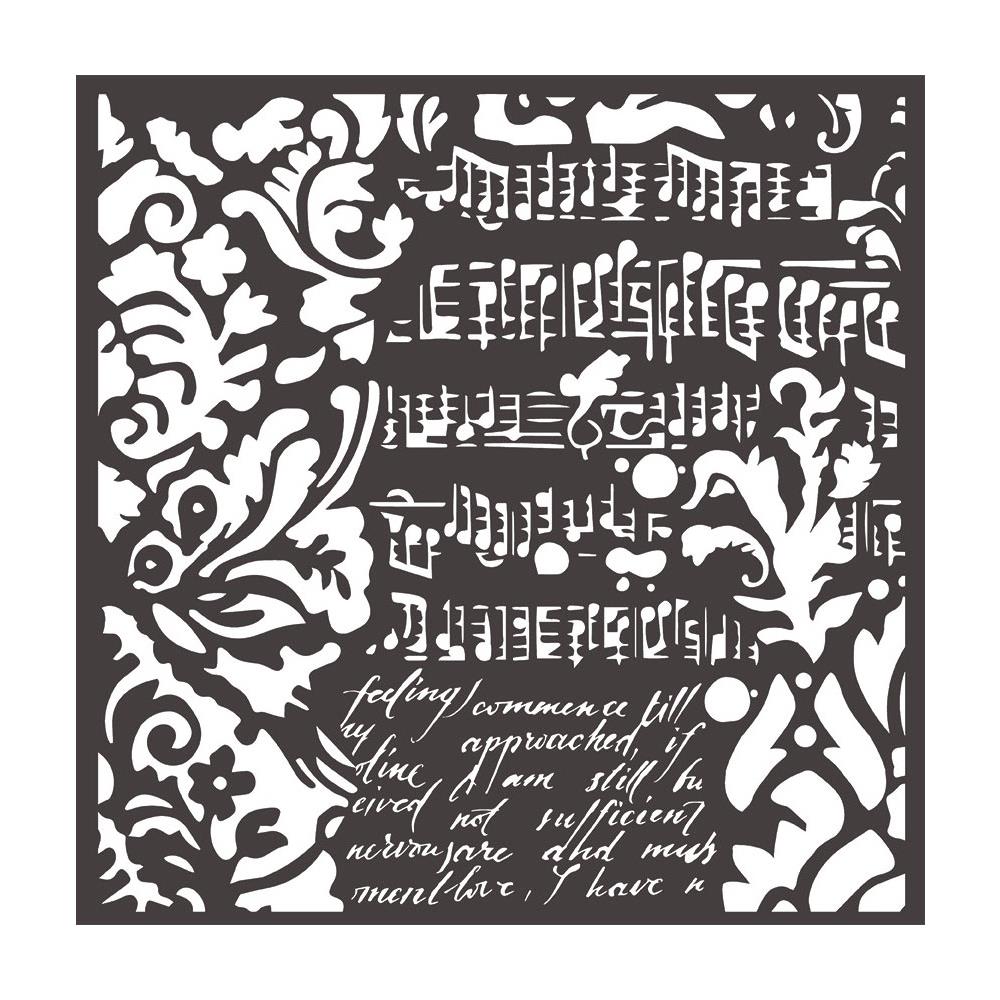 feeling) commence till
my approached, if
line I am still bu
eived not sufficient
nervous are and mus
ment love, I have n